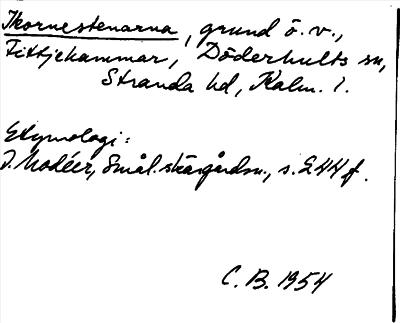 Skornestenarna, grund ö. v.,
Fittjehammar, Döderhults sn,
Stranda hd, Kalm. l.
Etymologi:
I. Modéer, Smål. skärgårdsn., s. 244 f.
C. B. 1954